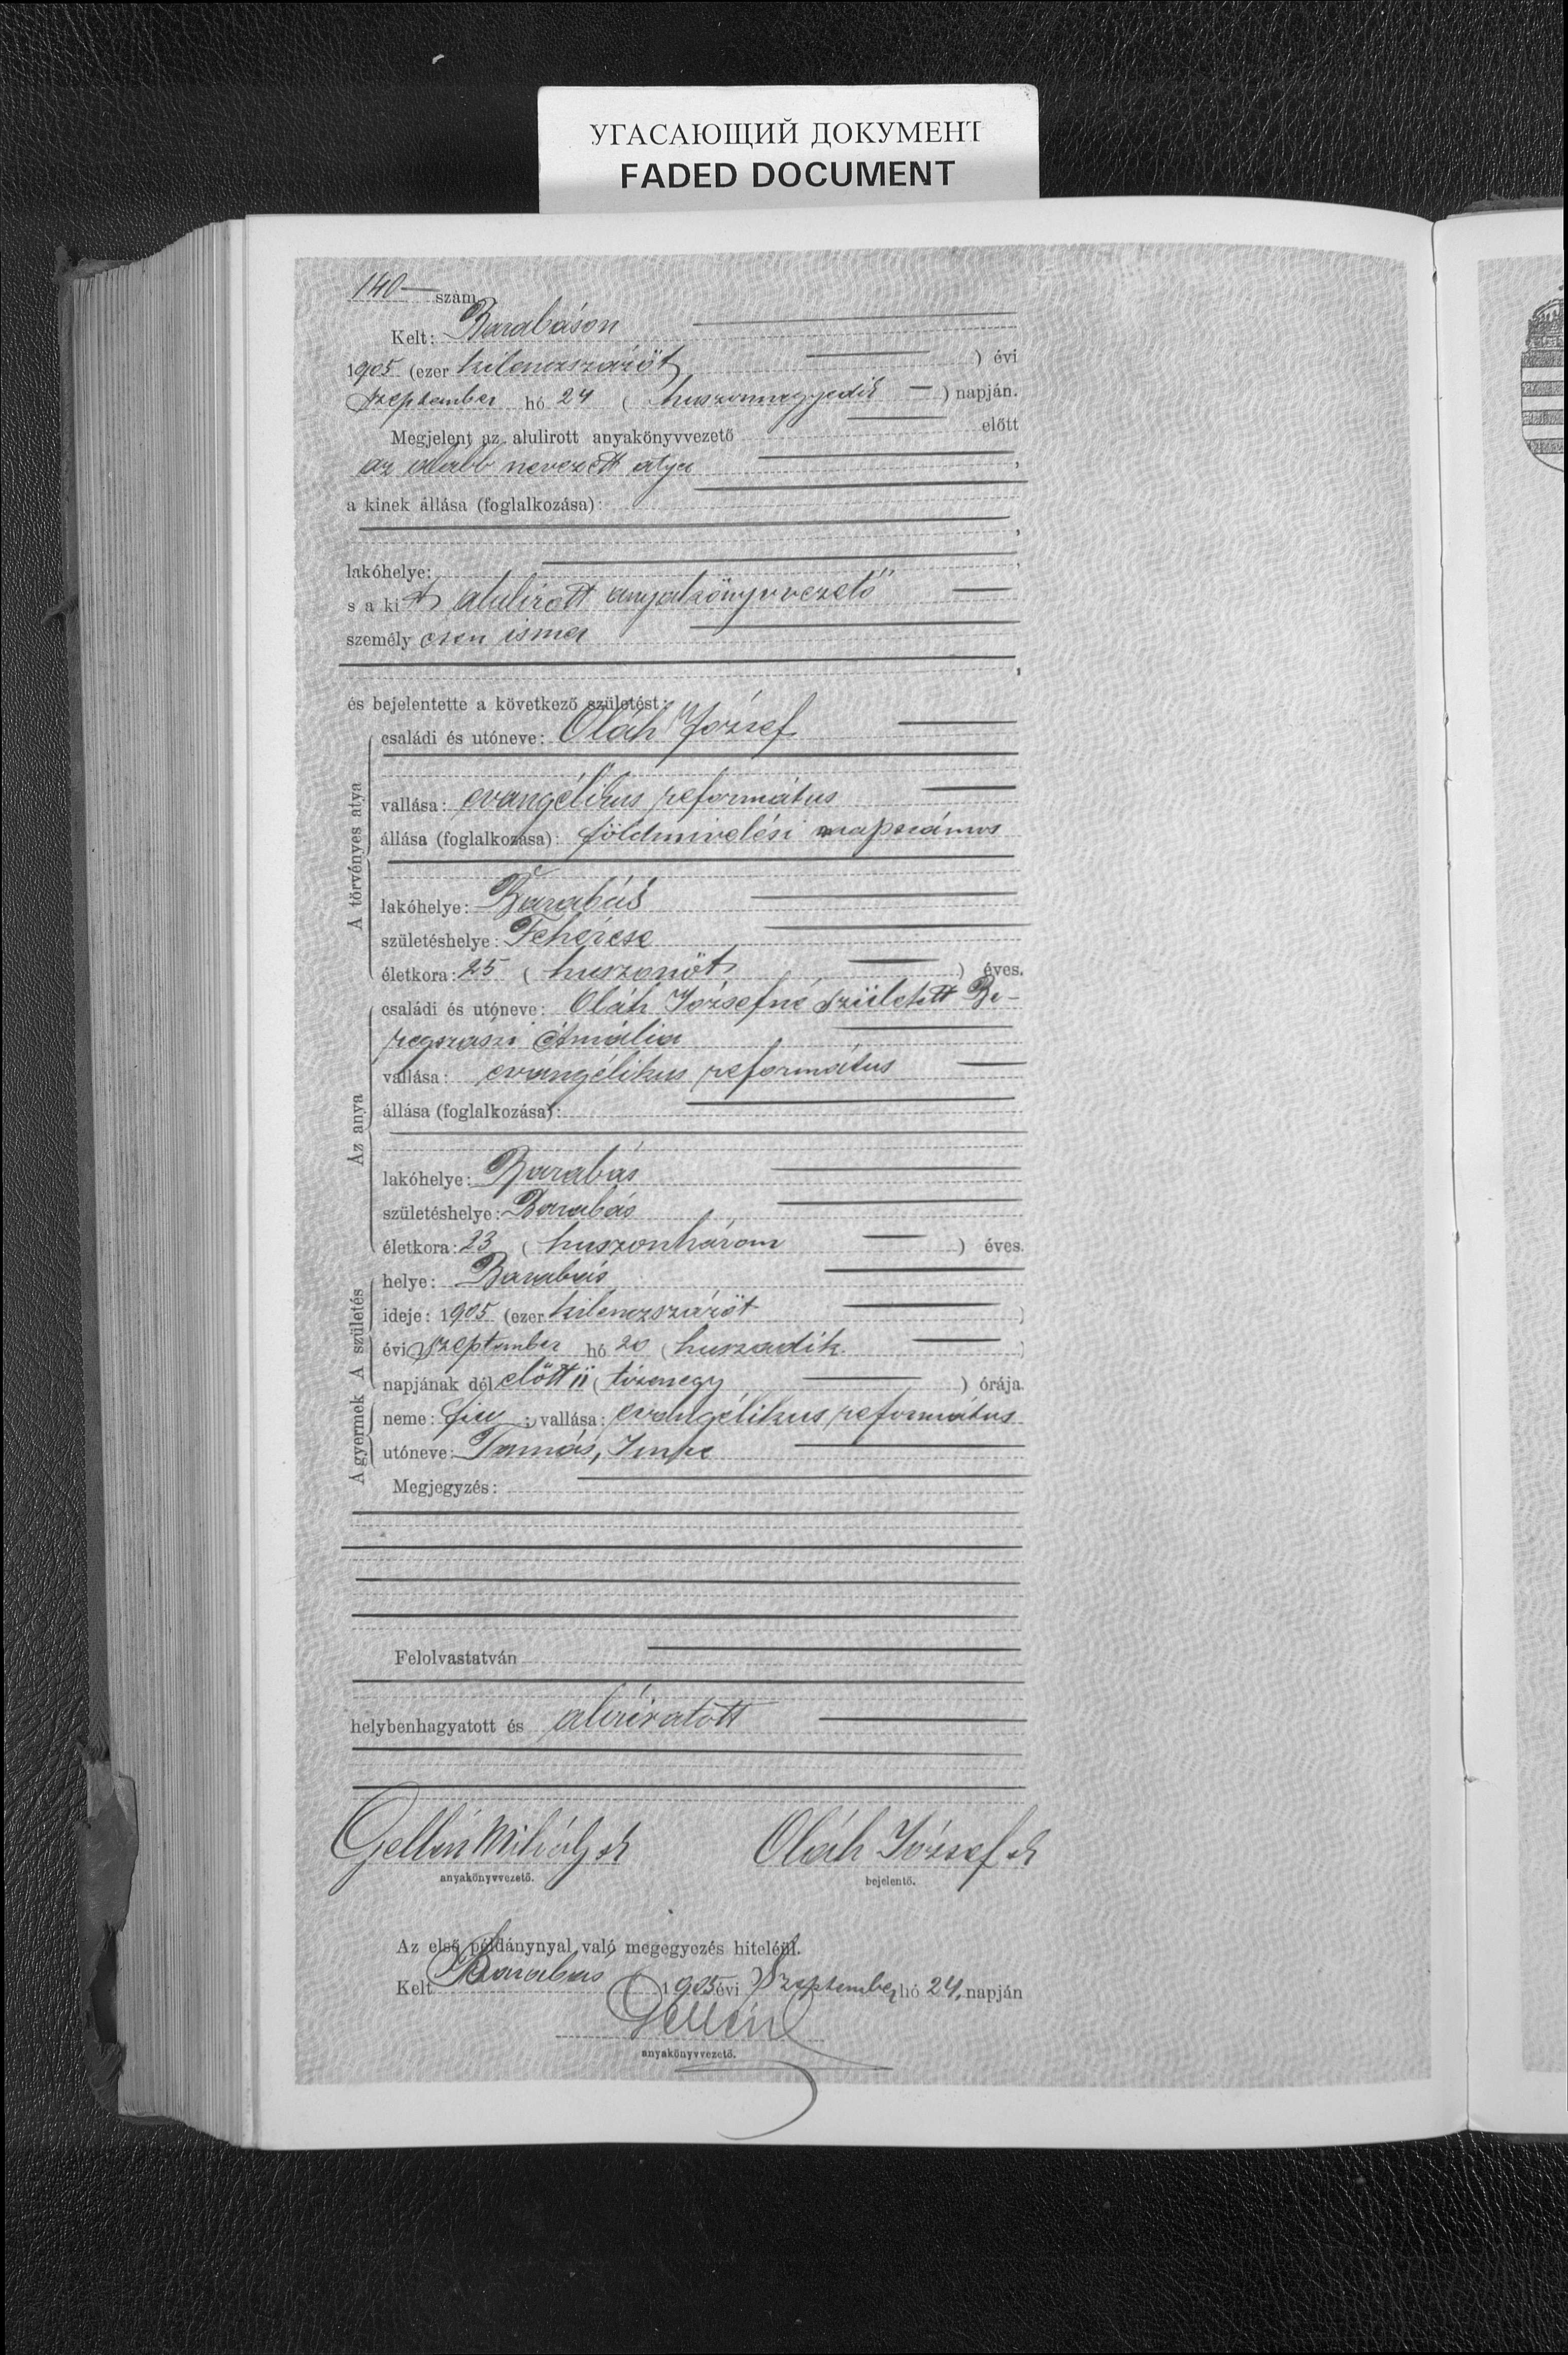 УГАСАЮЩИЙ ДОКУМЕНТ
FADED DOCUMENT
140 szám
Kelt: Barabáson
1905 (ezer kilenczszázöt ) évi
szeptember hó 24 ( huszonnegyedik ) napján.
Megjelent az alulirott anyakönyvvezető előtt
az alább nevezett atya ,
a kinek állása (foglalkozása):
,
lakóhelye: ,
s a kit alulírott anyakönyvvezető
személyesen ismer
,
és bejelentette a következő születést:
A törvényes atya
családi és utóneve: Oláh József
vallása: evangélikus református
állása (foglalkozása): földmivelési napszámos
lakóhelye: Barabás
születéshelye: Fehércse
életkora: 25 ( huszonöt ) éves.
Az anya
családi és utóneve: Oláh Józsefné született Be-
regszaszi Amália
vallása: evangélikus református
állása (foglalkozása):
lakóhelye: Barabás
születéshelye: Barabás
életkora: 23 ( huszonhárom ) éves.
A születés
helye: Barabás
ideje: 1905 (ezer kilenczszázöt )
évi szeptember hó 20 ( huszadik )
napjának dél előtt 11 ( tizenegy ) órája.
A gyermek
neme: fiu ; vallása: evangélikus református
utóneve: Tamás, Imre
Megjegyzés:
Felolvastatván
helybenhagyatott és aláíratott
Gellén Mihály sk Oláh József sk
anyakönyvvezető. bejelentő.
Az első példánynyal való megegyezés hiteléül.
Kelt Barabás 1905 évi Szeptember hó 24. napján
Gellén
anyakönyvvezető.